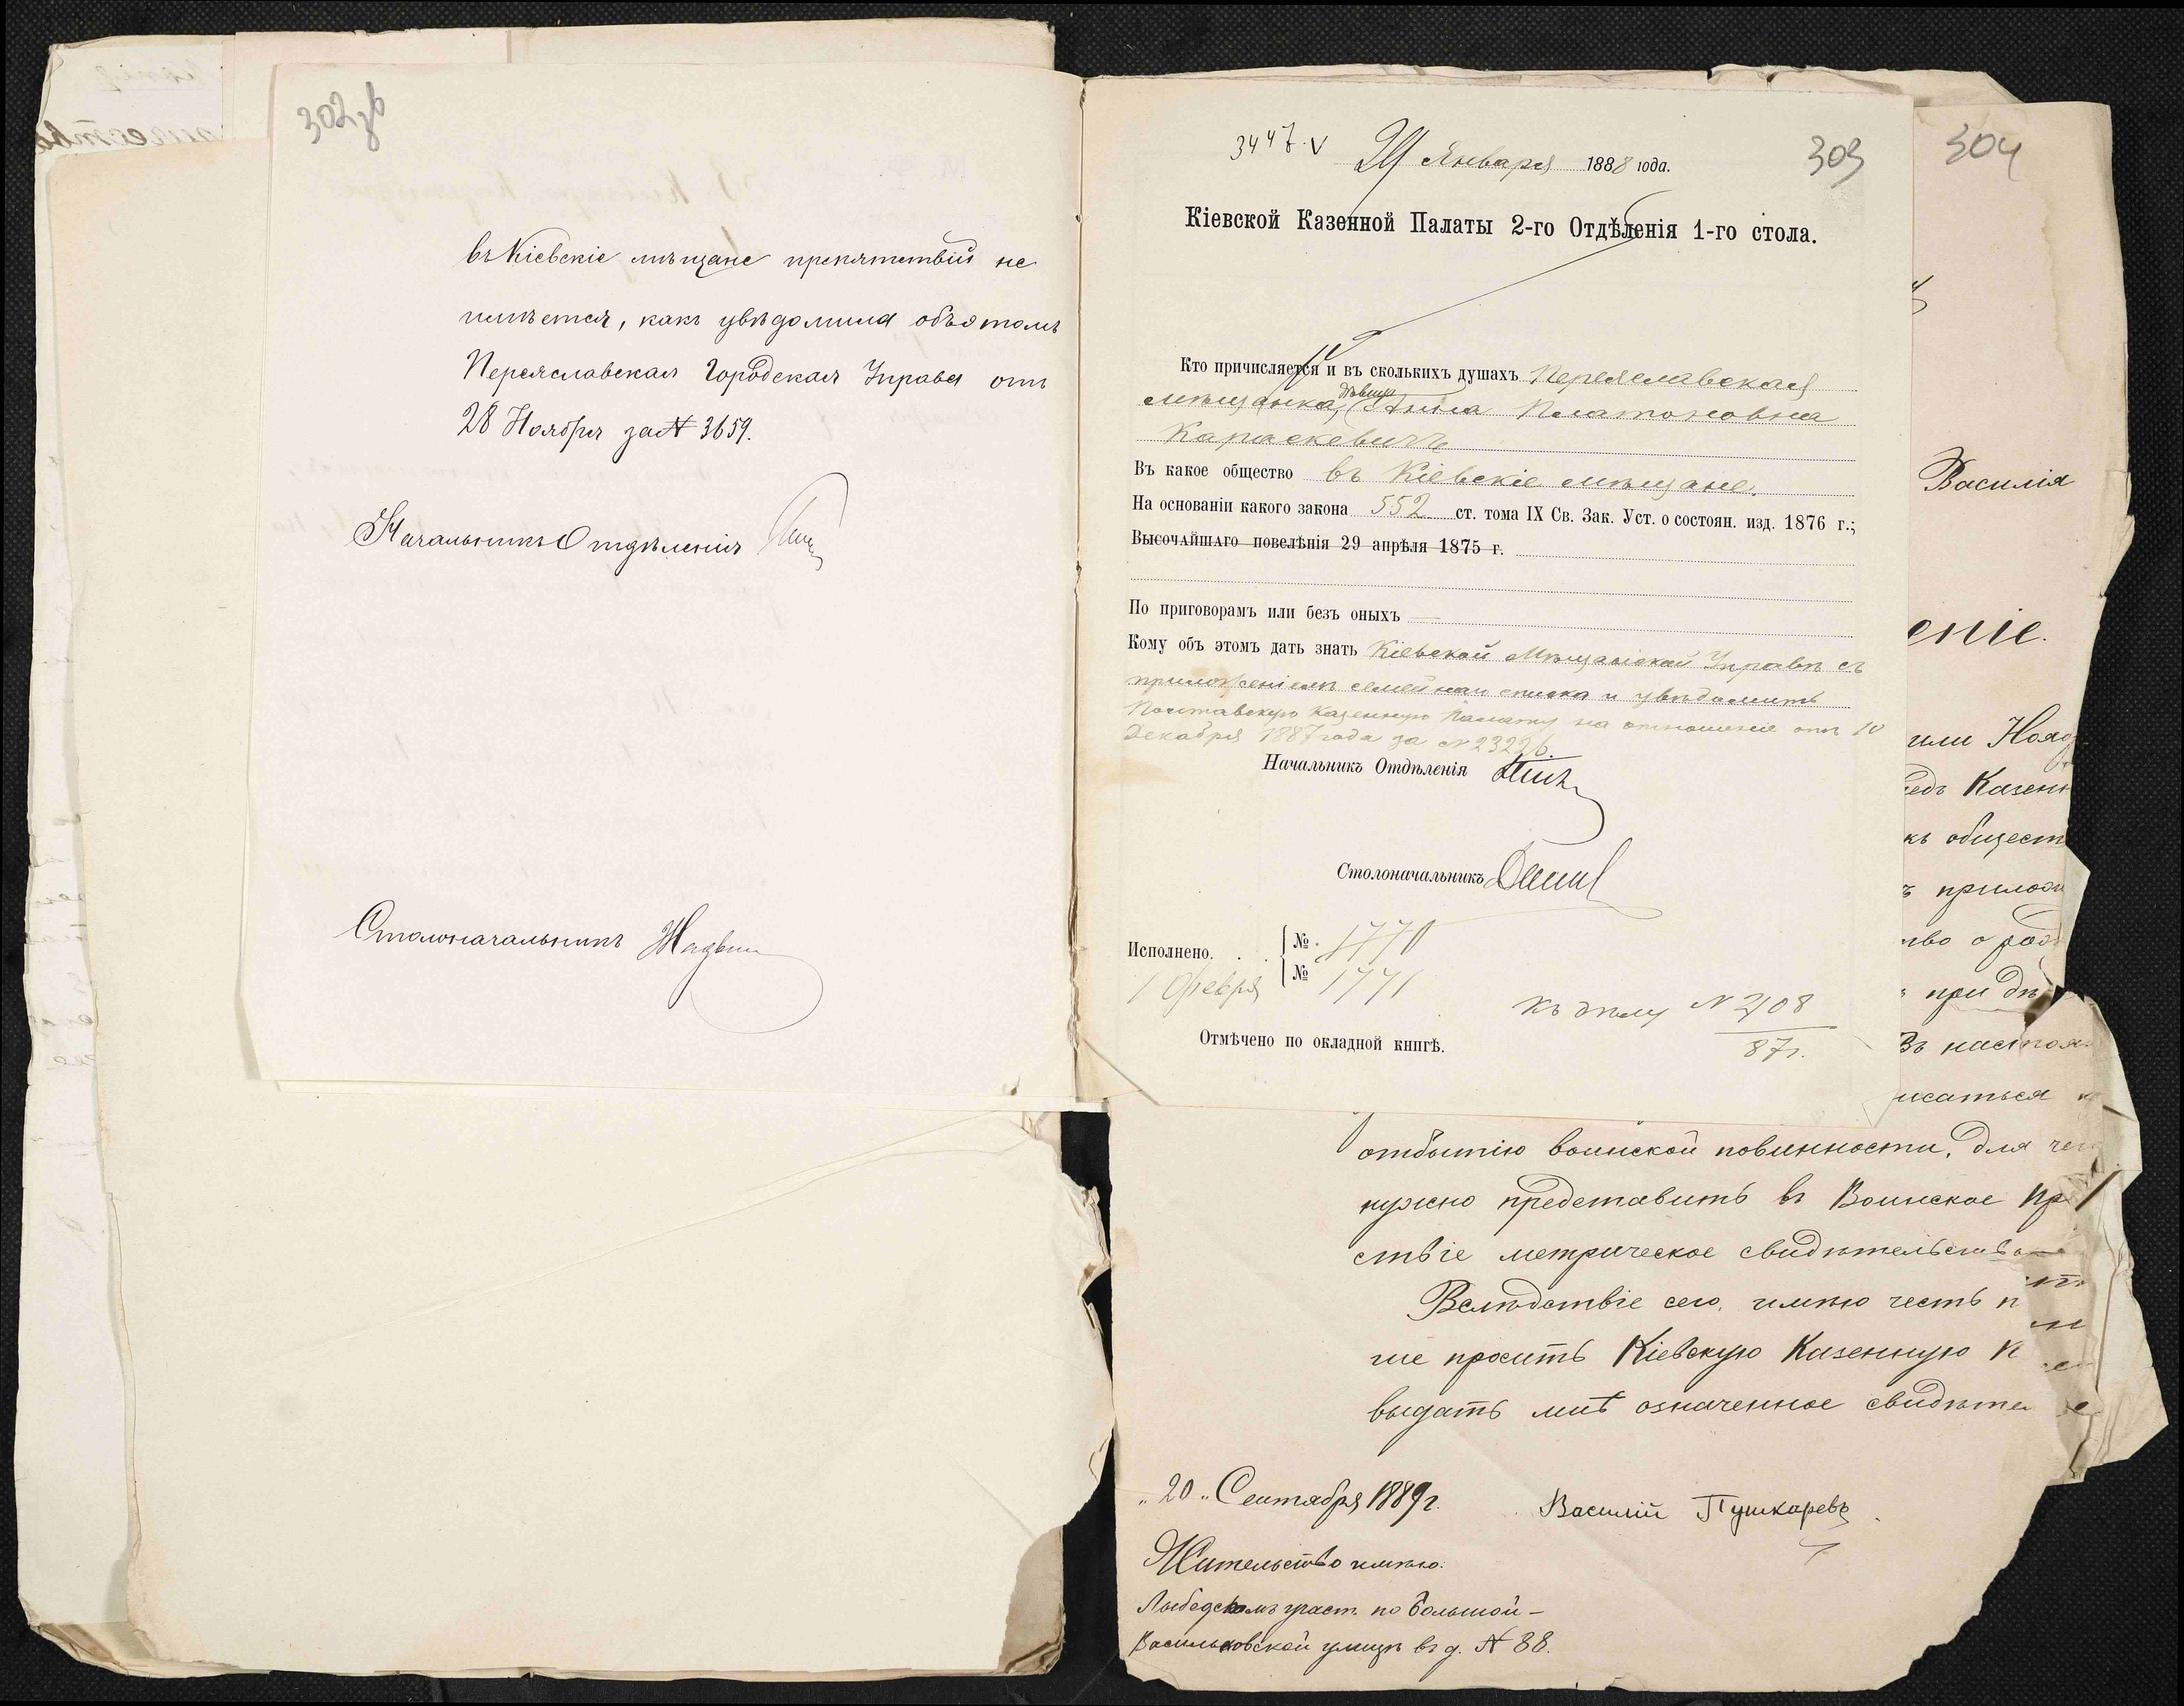 302
въ Кіевскіе мѣщане препятствій не
имѣется, какъ увѣдомила объ этомъ
Переяславская Городская Управа отъ
28 Ноября за № 3659.
Начальникъ Отдѣленія
Столоначальникъ
3447. V
Января 1888 года.
303
Кіевской Казенной Палаты 2-го Отдѣленія 1-го стола.
Кто причисляется и въ сколькихъ душахъ Переяславская
дѣвица
мѣщанка, Анна Платоновна
Карпаскевичъ
Въ какое общество въ Кіевскіе мѣщане.
На основаніи какого закона 552 ст. тома IX Св. Зак. Уст. о состоян. изд. 1876 г.;
Высочайшаго повелѣнія 29 апрѣля 1875 г.
По приговорамъ или безъ оныхъ —
Кому объ этомъ дать знать Кіевской Мѣщанской Управѣ съ
приложеніемъ семейнаго списка и увѣдомить
Полтавскую Казенную Палату на отношеніе отъ 10
Декабря 1887 года за № 23226.
Начальникъ Отдѣленія
Столоначальникъ
Исполнено. . . № 1770
№ 1771
1 Февря
Къ дѣлу № 2108
87 г.
Отмѣчено по окладной книгѣ.
304
Василія
еніе.
или Нояб
едъ Казенн
къ общест
ъ прилож
тво о рож
при дѣ
Въ настоя
исаться
отбытію воинской повинности, для чего
нужно представить въ Воинское При
ствіе метрическое свидѣтельство
Вслѣдствіе сего, имѣю честь п
ше просить Кіевскую Казенную П
выдать мнѣ означенное свидѣте
„20„ Сентября 1889 г. Василій Пушкаревъ
Жительство имѣю:
Лыбедскомъ участ. по Большой-
Васильковской улицѣ въ д. № 88.